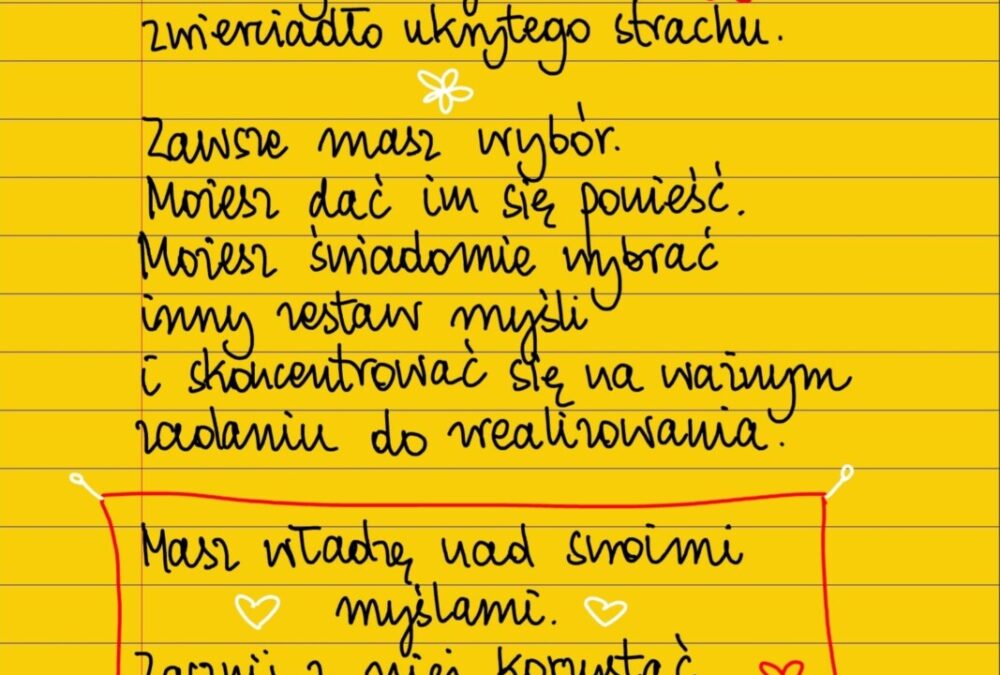 zwierciadło ukrytego strachu.
Zawsze masz wybór.
Możesz dać im się ponieść.
Możesz świadomie wybrać
inny zestaw myśli
i skoncentrować się na ważnym
zadaniu do zrealizowania.
Masz władzę nad swoimi
myślami.
Zacznij z niej korzystać